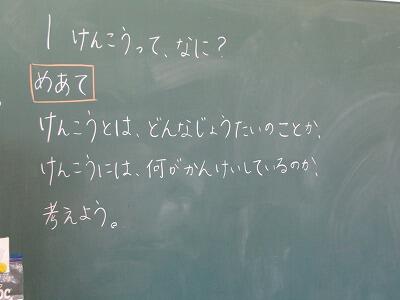 1 けんこうって、なに？
めあて
けんこうとは、どんなじょうたいのことか、
けんこうには、何がかんけいしているのか、
考えよう。